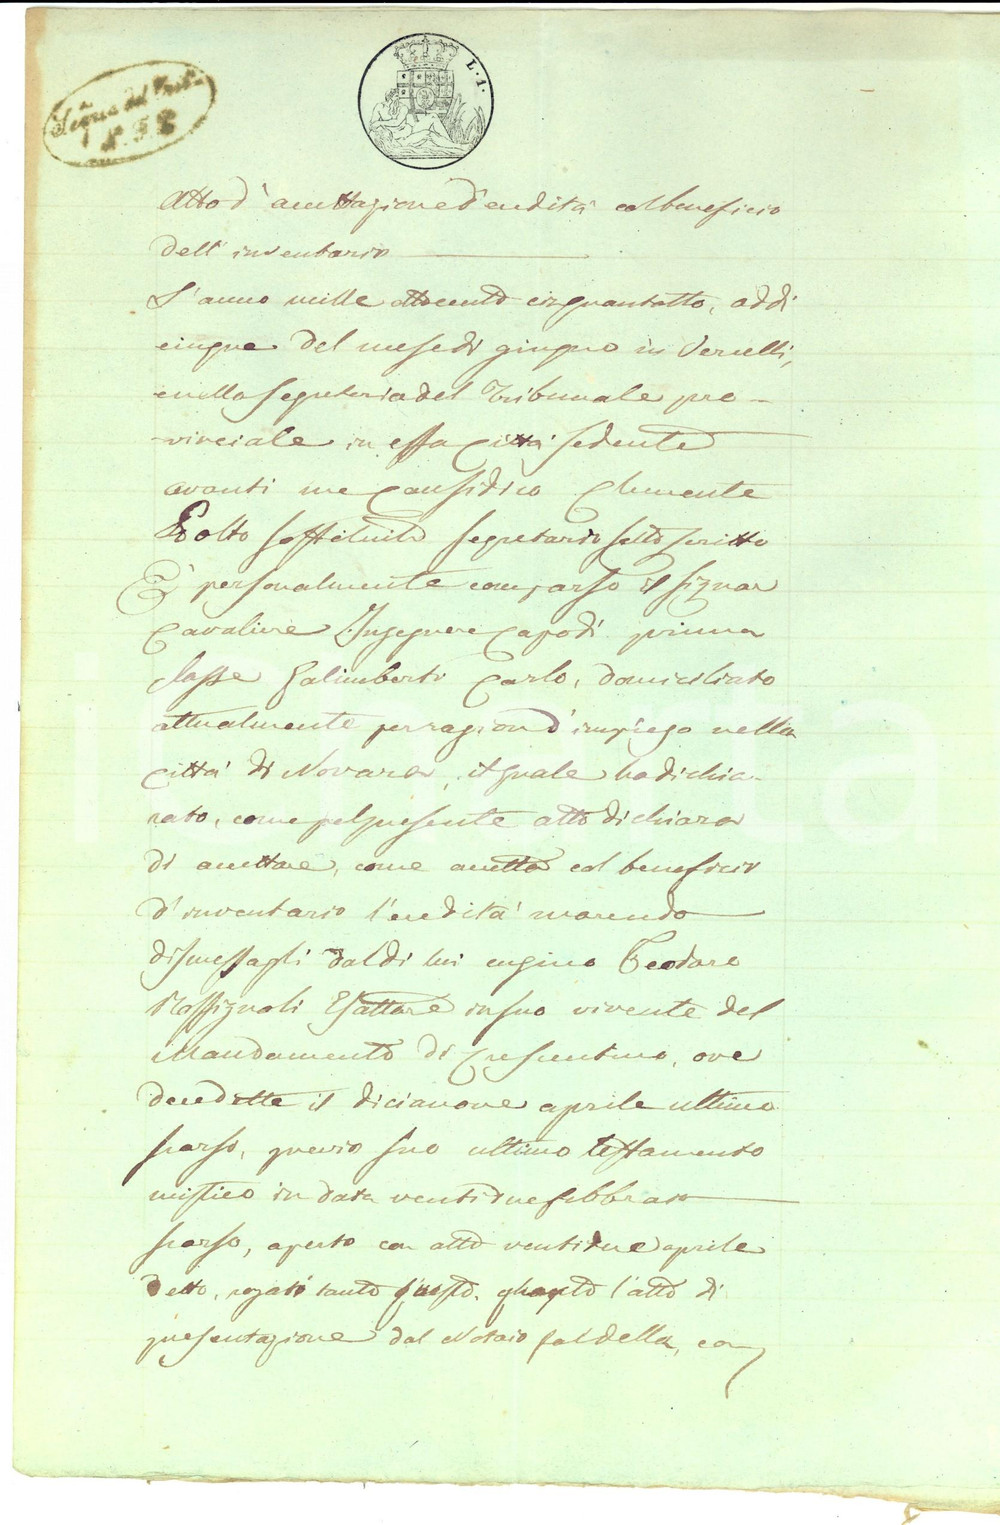 L. 1.
Seg.ria del Trib.le
N. 58
Atto d'accettazione d'eredità col beneficio
dell'inventario
L'anno mille ottocento cinquantotto, addi
cinque del mese di giugno in Vercelli,
e nella segreteria del Tribunale pro-
-vinciale in essa Città sedente
avanti me Causidico Clemente
sostituito segretario sottoscritto
È personalmente comparso il signor
Cavaliere Ingegnere Capo di prima
classe Galimberti Carlo, domiciliato
attualmente per ragion d'impiego nella
città di Novara, il quale ha dichia-
rato, come pel presente atto dichiara
di accettare, come accetta col beneficio
d'inventario l'eredità morendo
dismessagli dal di lui cugino Teodoro
Rossignoli Esattore in suo vivente del
Mandamento di Crescentino, ove
decedette il dicianove aprile ultimo
scorso, previo suo ultimo testamento
mistico in data ventidue febbraio
scorso, aperto con atto ventidue aprile
detto, rogati tanto questo, quanto l'atto di
presentazione dal Notaio Faldella, con